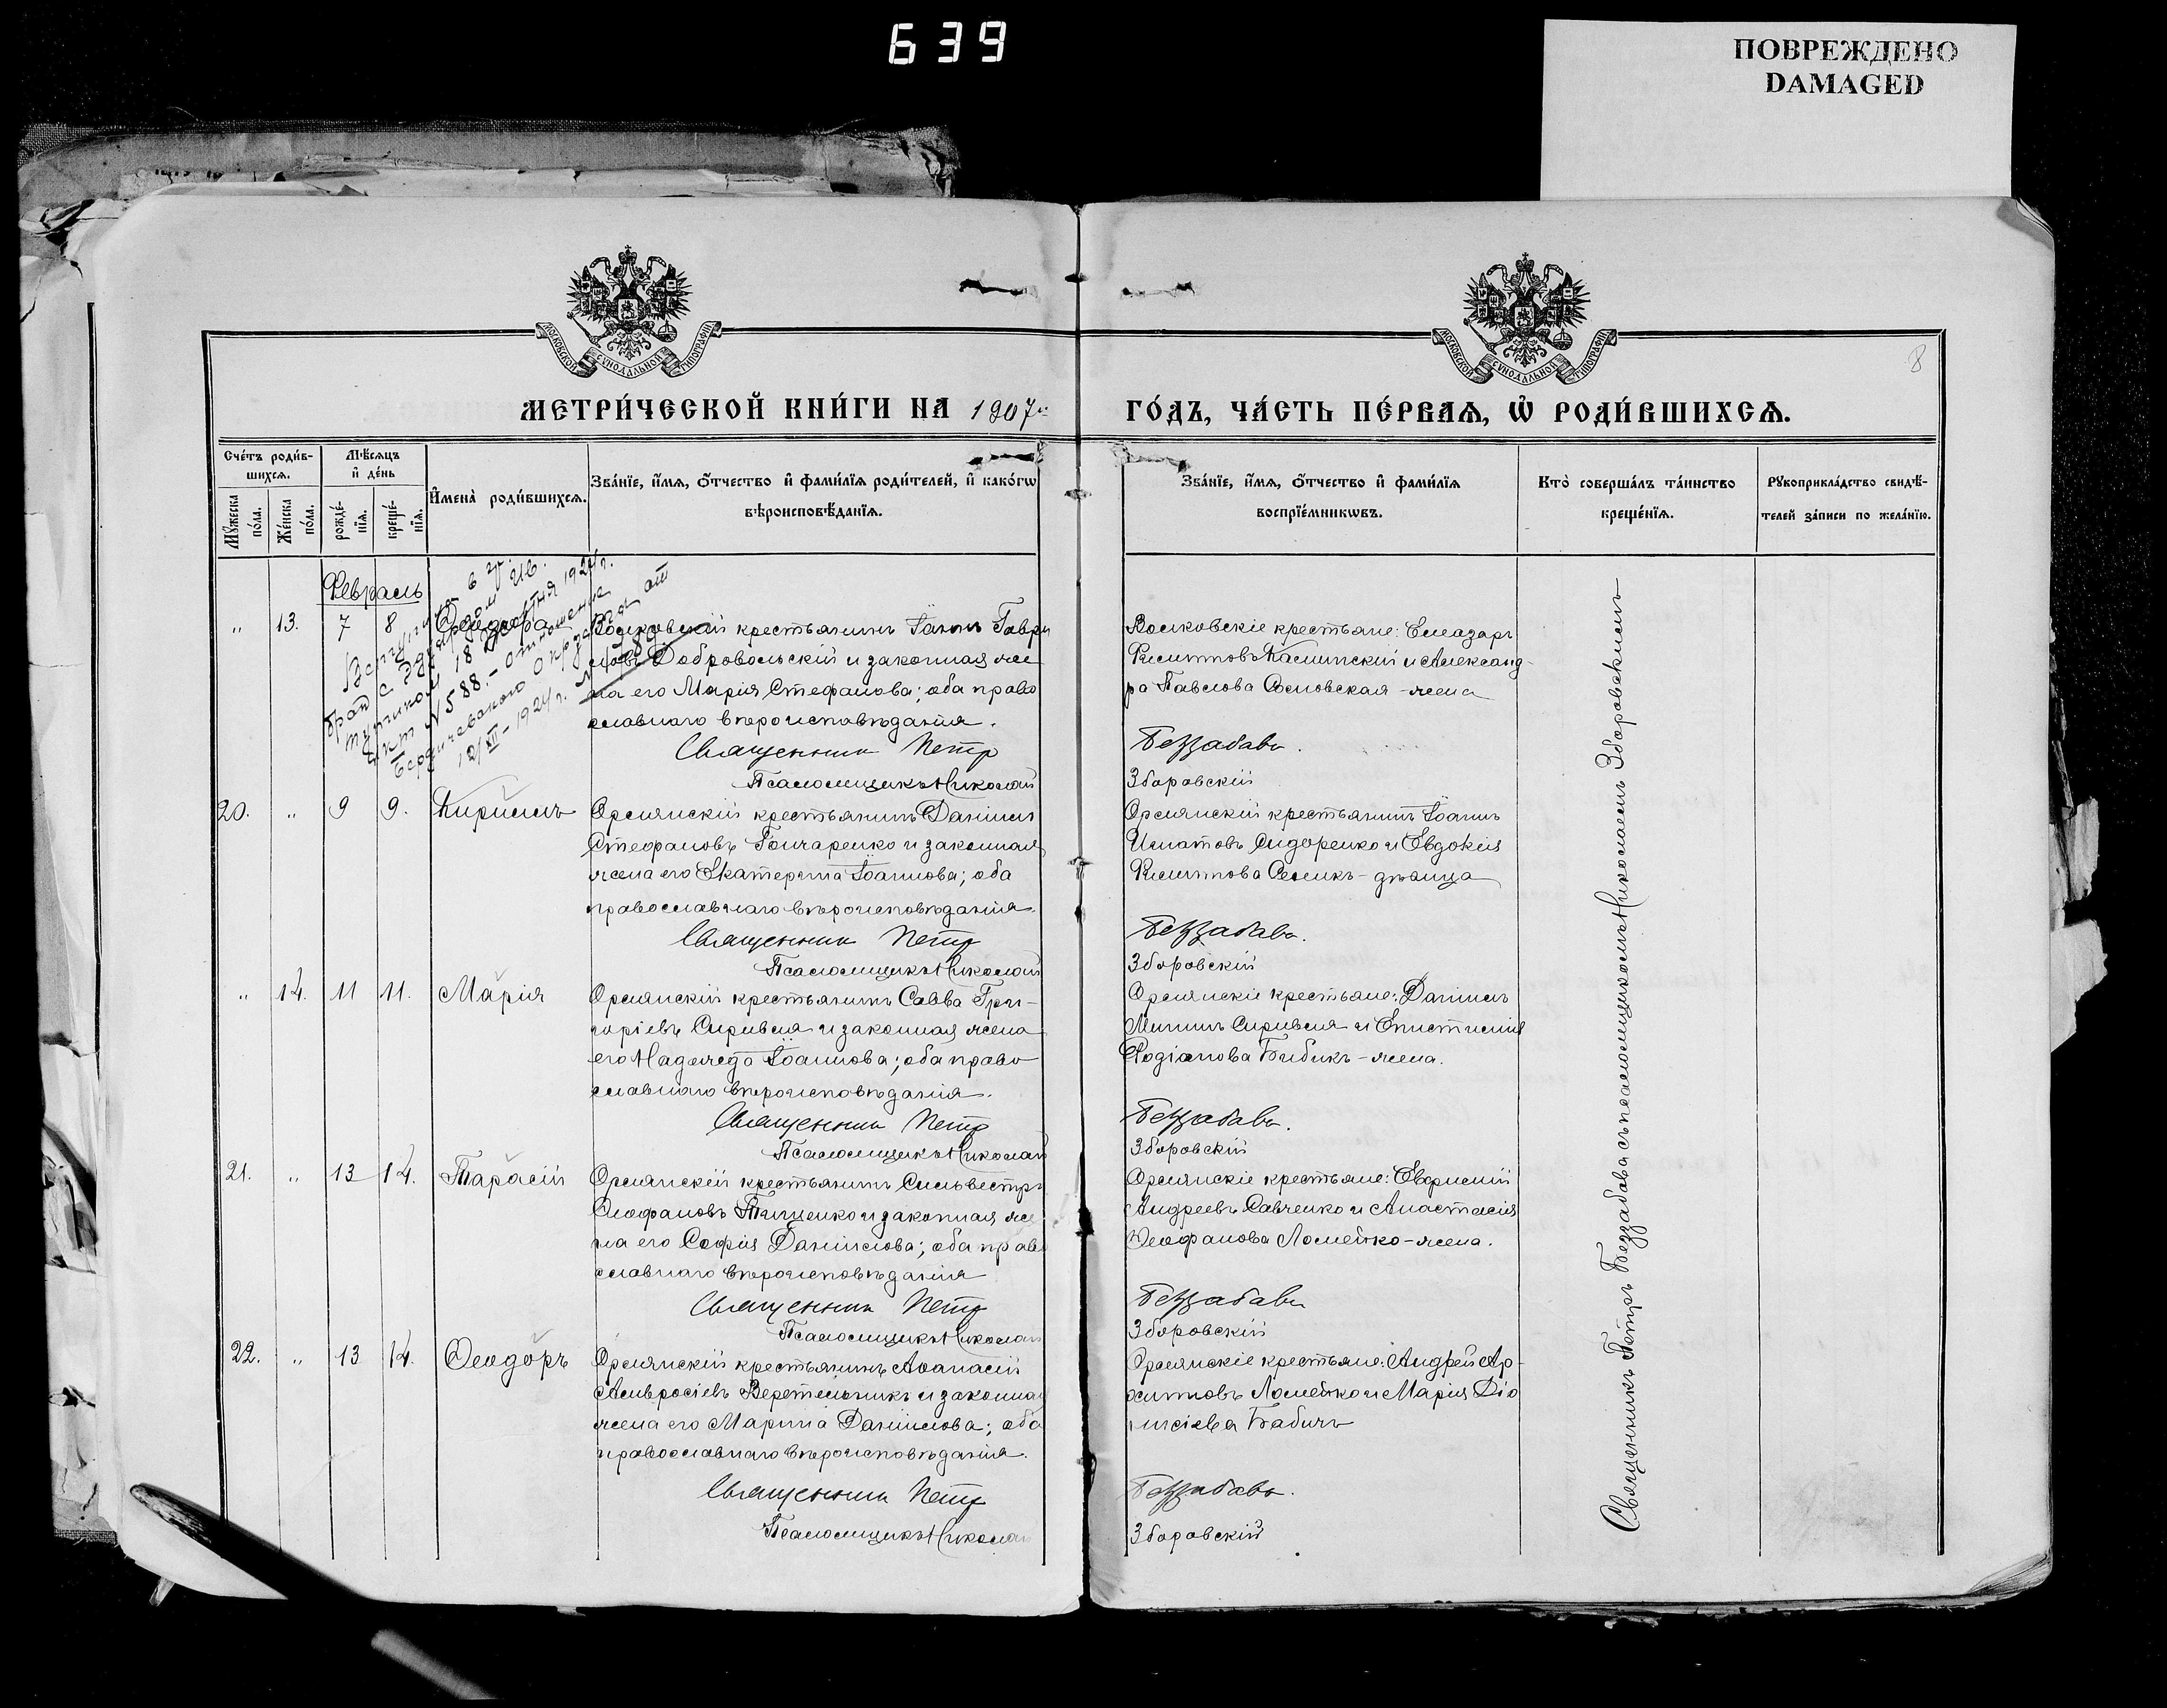 639
ПОВРЕЖДЕНО
DAMAGED
МОСКОВСКОЙ СѴНОДАЛЬНОЙ ТИПОГРАФІИ
МОСКОВСКОЙ СѴНОДАЛЬНОЙ ТИПОГРАФІИ
8
МЕТРИ́ЧЕСКОЙ КНИ́ГИ НА 1907й
ГО́ДЪ, ЧА́СТЬ ПЕ́РВАѦ, Ѽ РОДИ́ВШИХСѦ.
Сче́тъ роди́в-
шихсѧ.
Мꙋжеска по́ла.
Же́нска по́ла.
Мѣ́сѧцъ
и҆ де́нь
рожде́-
нїѧ.
креще́-
нїѧ.
И҆мена̀ роди́вшихсѧ.
Зва́нїе, и҆́мѧ, ѻ҆́тчество и҆ фами́лїѧ роди́телей, и҆ како́гѡ
вѣроисповѣ́данїѧ.
Зва́нїе, и҆́мѧ, ѻ҆́тчество и҆ фами́лїѧ
воспрїе́мникѡвъ.
Кто̀ соверша́лъ та́инство
креще́нїѧ.
Рꙋкоприкла́дство свидѣ́-
телей за́писи по жела́нїю.
Февраль
" 13. 7 8
Волковскій крестьянинъ Іоаннъ Гаври
ловъ Добровольскій и законная же
на его Марія Стефанова; оба право
славнаго вѣроисповѣданія.
Священник Петр
Псаломщикъ Николай
Волковскіе крестьяне: Елеазаръ
Филиповъ Калинскій и Александ-
ра Павлова Сосновская - жена
Беззабава.
Зборовскій
брак с
18
акт N 588. - отношение
Бердичевского Окр
12/XII - 1924 г. N
20. " 9 9. Кириллъ
Орлянскій крестьянинъ Даніилъ
Стефановъ Гончаренко и законная
жена его Екатерина Іоаннова; оба
православнаго вѣроисповѣданія.
Священник Петр
Псаломщикъ Николай
Орлянскій крестьянинъ Іоаннъ
Игнатовъ Сидоренко и Евдокія
Филиппова Семикъ - дѣвица
Беззабава.
Зборовскій
" 14. 11 11. Марія
Орлянскій крестьянинъ Савва Гри-
горіевъ Сиривля и законная жена
его Надежда Іоаннова; оба право
славнаго вѣроисповѣданія.
Священник Петр
Псаломщикъ Николай
Орлянскіе крестьяне: Даніилъ
Мининъ Сиривля и Епистимія
Родіонова Бибикъ - жена.
Беззабава.
Зборовскій
21. " 13 14. Тарасій
Орлянскій крестьянинъ Сильвестръ
Ѳеофановъ Тищенко и законная же
на его Софія Даніилова; оба право
славнаго вѣроисповѣданія
Священник Петр
Псаломщикъ Николай
Орлянскіе крестьяне: Евфимій
Андреевъ Савченко и Анастасія
Ѳеофанова Ломейко - жена.
Беззабава
Зборовскій
22. " 13 14. Ѳеодоръ
Орлянскій крестьянинъ Аѳанасій
Амвросіевъ Веретельникъ и законная
жена его Марина Даніилова; оба
православнаго вѣроисповѣданія.
Священник Петр
Псаломщикъ Николай
Орлянскіе крестьяне: Андрей Ар-
хиповъ Ломейко и Марія Діо
нисіева Бабичъ
Беззабава.
Зборовскій
Священникъ Петръ Беззабава съ псаломщикомъ Николаемъ Зборовскимъ